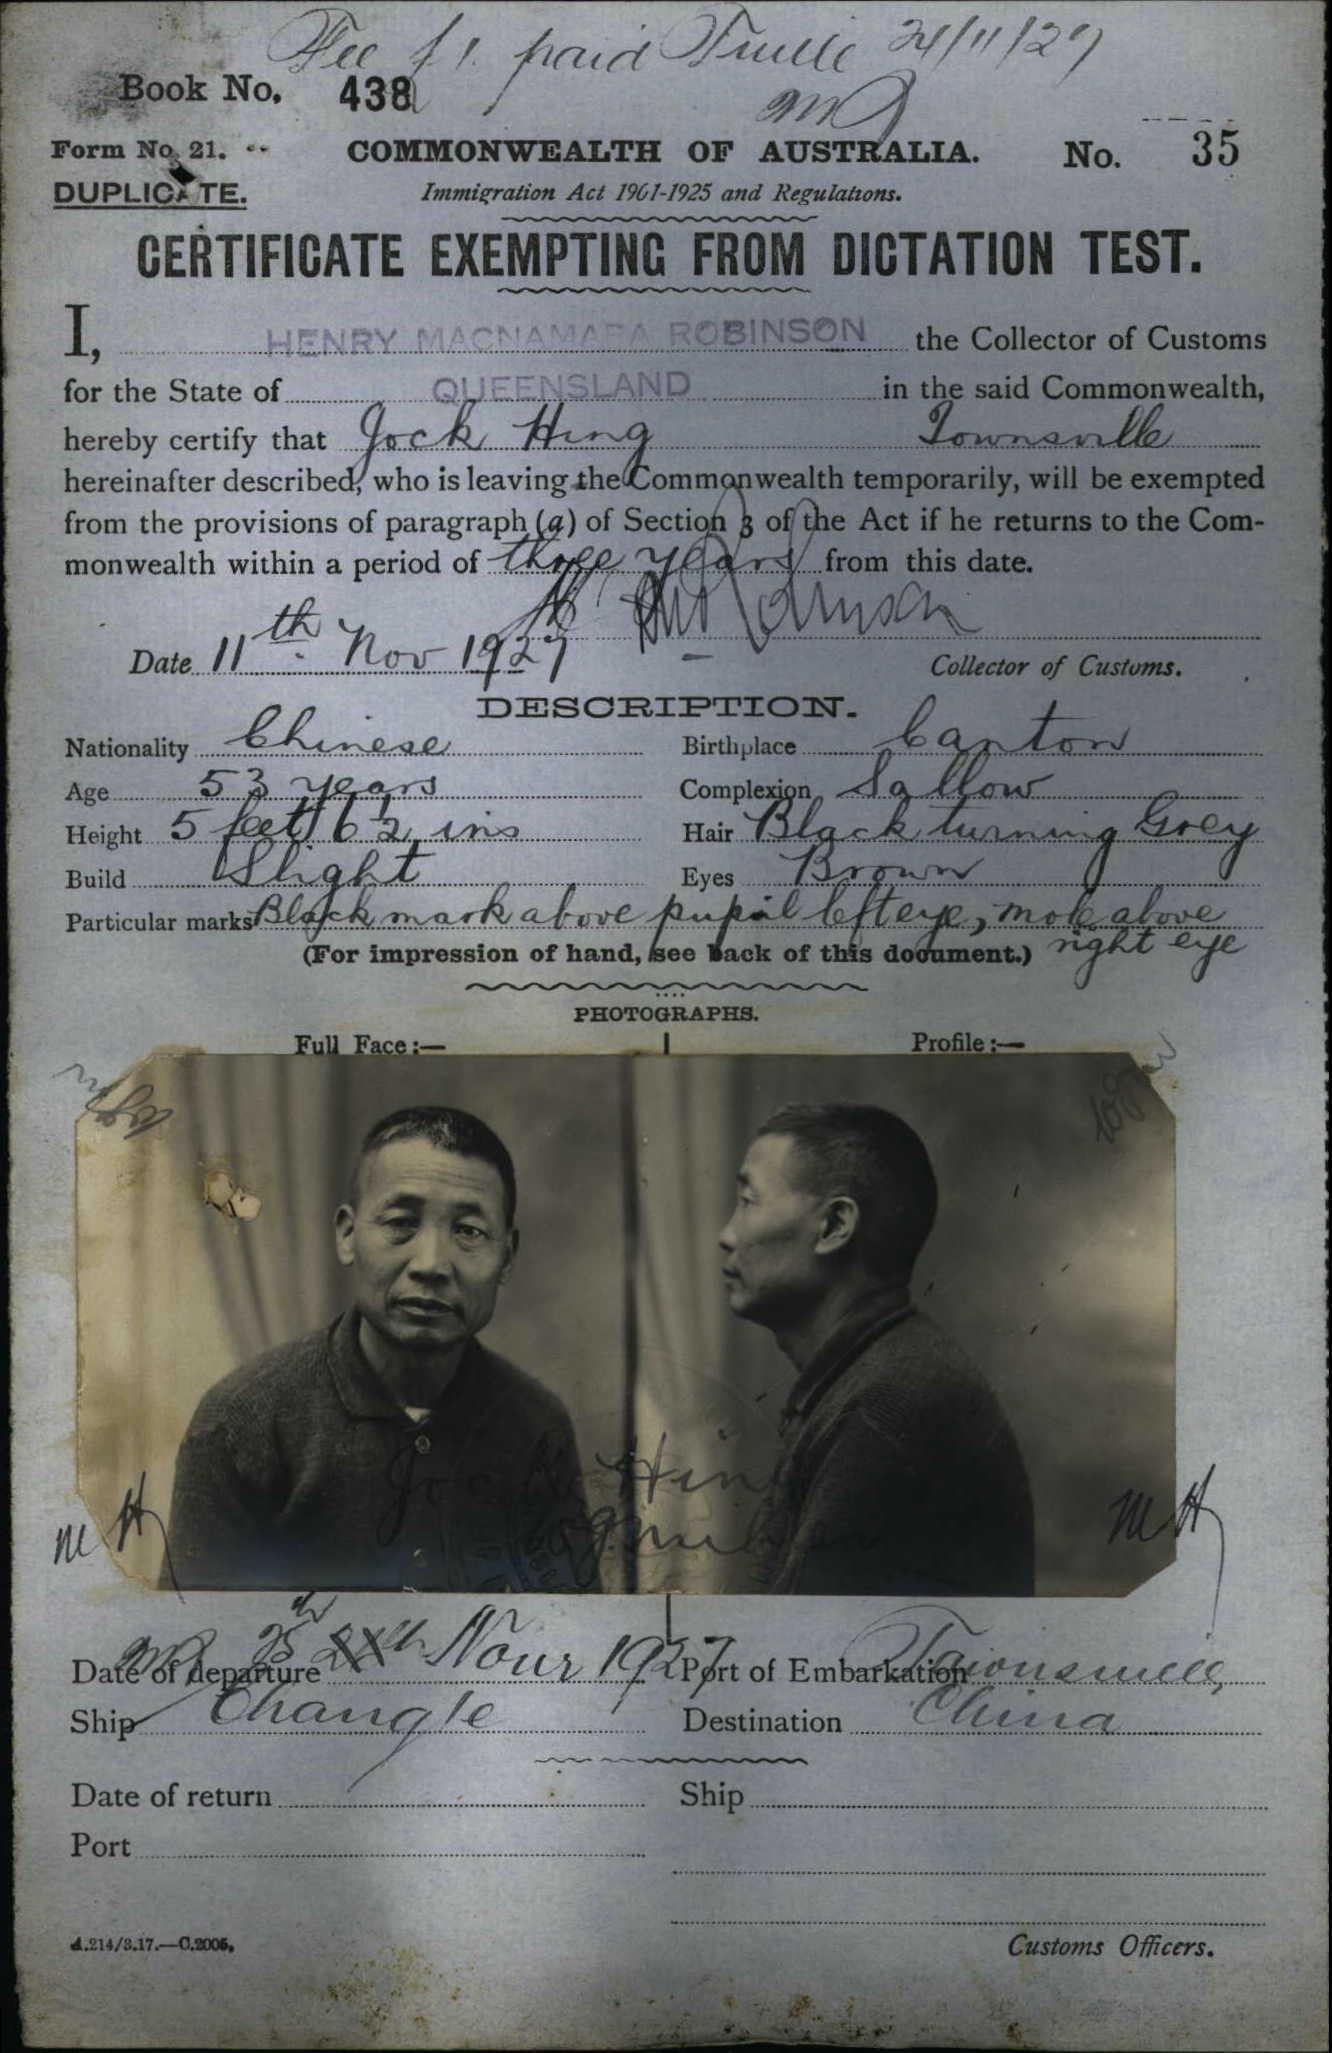 Fee £1. paid T'ville 24/11/27
Book No. 438
Form No. 21. COMMONWEALTH OF AUSTRALIA. No. 35
DUPLICATE. Immigration Act 1901-1925 and Regulations.
CERTIFICATE EXEMPTING FROM DICTATION TEST.
I, HENRY MACNAMARA ROBINSON the Collector of Customs
for the State of QUEENSLAND in the said Commonwealth,
hereby certify that Jock Hing Townsville
hereinafter described, who is leaving the Commonwealth temporarily, will be exempted
from the provisions of paragraph (a) of Section 3 of the Act if he returns to the Com-
monwealth within a period of three years from this date.
Date 11th Nov 1927 Collector of Customs.
DESCRIPTION.
Nationality Chinese Birthplace Canton
Age 53 years Complexion Sallow
Height 5 feet 6½ ins Hair Black turning Grey
Build Slight Eyes Brown
Particular marks Black mark above pupil left eye, mole above
right eye
(For impression of hand, see back of this document.)
PHOTOGRAPHS.
Full Face:— Profile:—
Jock Hing
M H M H
Date of departure 25th Novr 1927 Port of Embarkation Townsville,
Ship Changte Destination China
Date of return Ship
Port
A.214/3.17.—C.2005. Customs Officers.